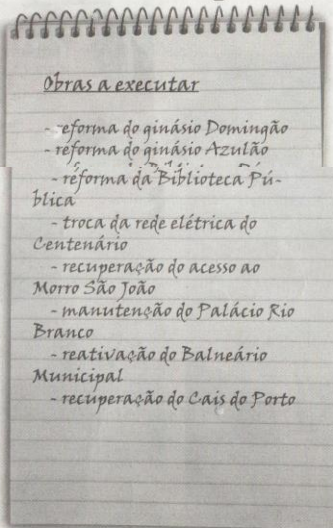 Obras a executar
- reforma do ginásio Domingão
- reforma do ginásio Azulão
- reforma da Biblioteca Pú-
blica
- troca da rede elétrica do
Centenário
- recuperação do acesso ao
Morro São João
- manutenção do Palácio Rio
Branco
- reativação do Balneário
Municipal
- recuperação do Cais do Porto